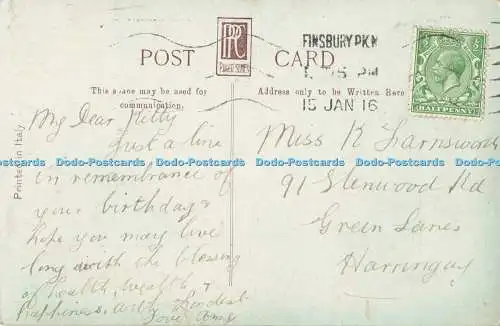 POST CARD
FINSBURY PK.N
15 JAN 16
HALFPENNY
This space may be used for
communication.
Address only to be Written Here
Printed in Italy
My Dear Kitty
Just a line
in remembrance of
your birthday &
hope you may live
long with the blessing
of health, wealth &
happiness, with fondest
love Amy
Miss K Farnsworth
91 Glenwood Rd
Green Lanes
Harringay
Dodo-Postcards Dodo-Postcards Dodo-Postcards Dodo-Postcards Dodo-Postcards
Dodo-Postcards Dodo-Postcards Dodo-Postcards Dodo-Postcards Dodo-Postcards